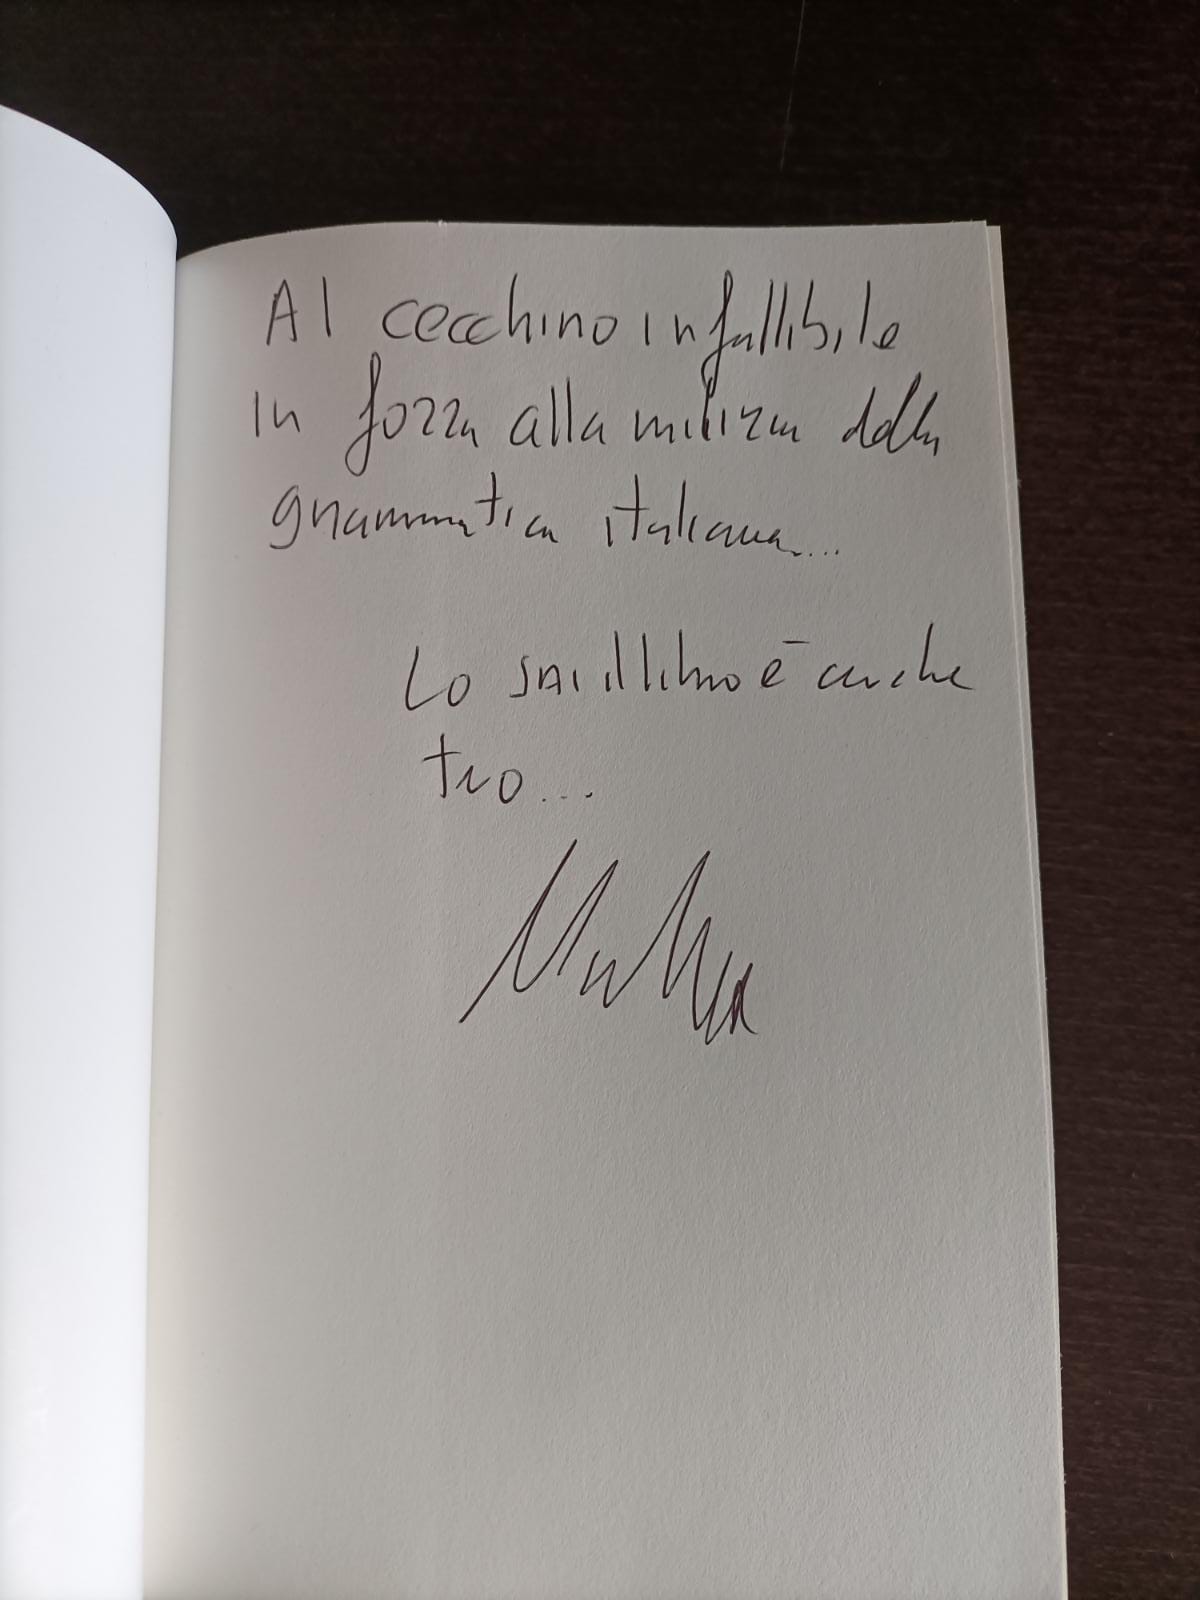 Al cecchino infallibile
in forza alla milizia della
grammatica italiana...
Lo sai il libro è anche
tuo...